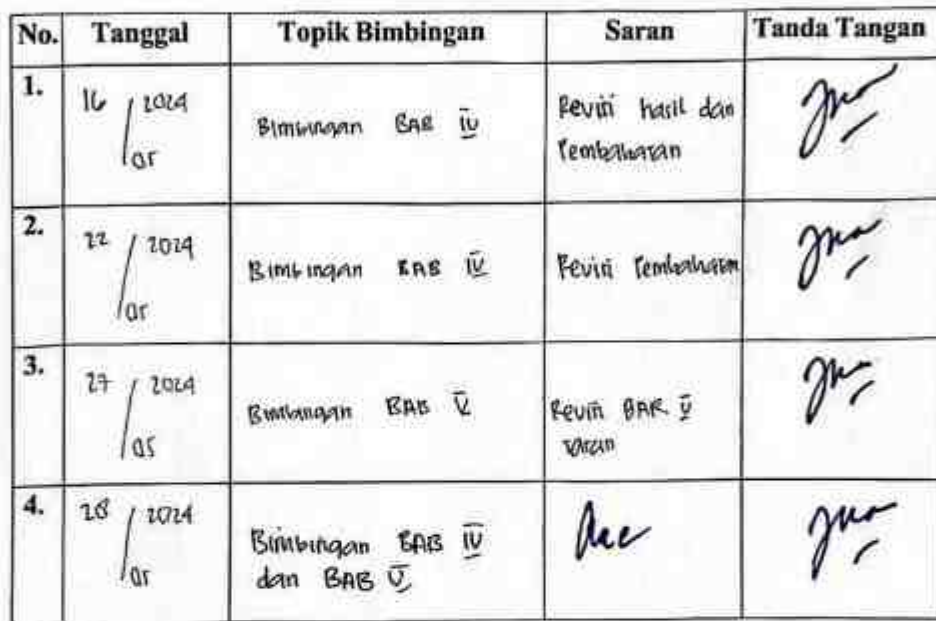 No. Tanggal Topik Bimbingan Saran Tanda Tangan
1. 16 / 2024 Bimbingan BAB IV Revisi hasil dan
/ 05 Pembahasan
2. 22 / 2024 Bimbingan BAB IV Revisi Pembahasan
/ 05
3. 27 / 2024 Bimbingan BAB V Revisi BAB V
/ 05 saran
4. 28 / 2024 Bimbingan BAB IV Acc
/ 05 dan BAB V